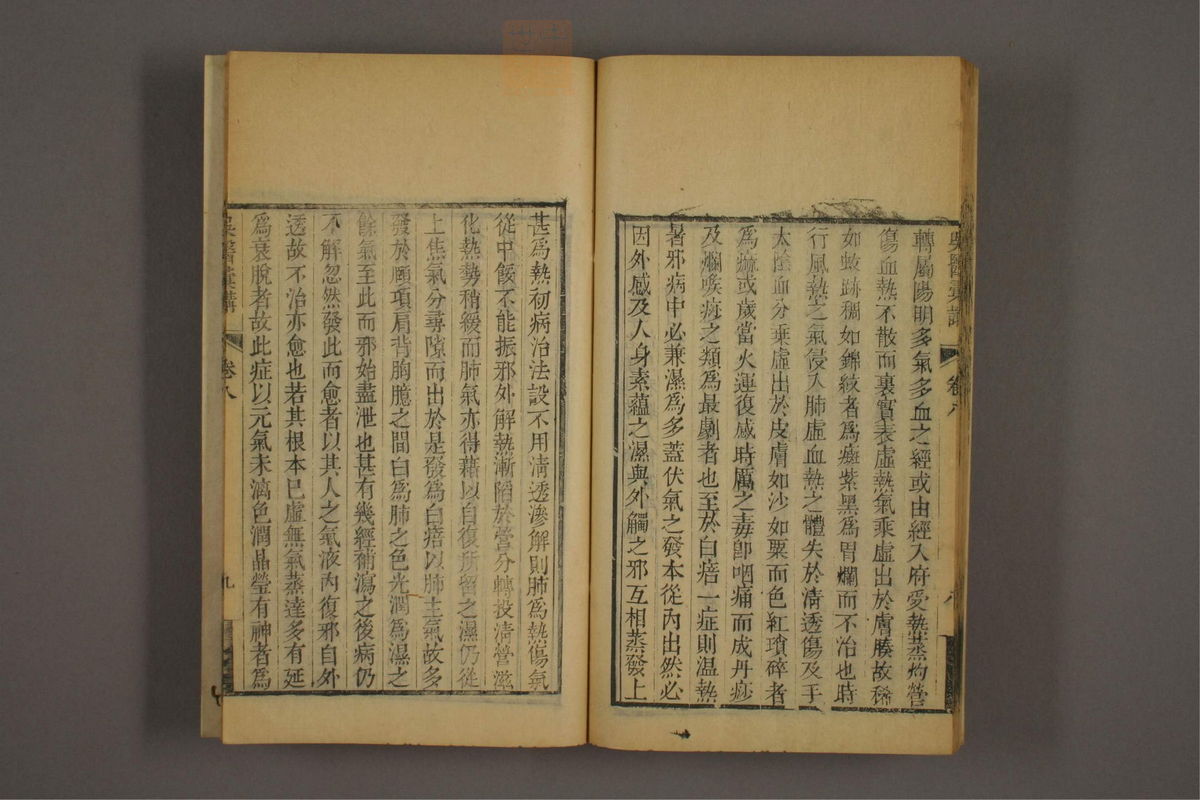 轉屬陽明多氣多血之經或由經入府受熱蒸灼營
傷血熱不散而裏實表虛熱氣乘虛出於膚腠故稀
如蚊跡稠如錦紋者爲癍紫黑爲胃爛而不治也時
行風熱之氣侵入肺虛血熱之體失於清透傷及手
太陰血分乘虛出於皮膚如沙如粟而色紅瑣碎者
爲痲或歲當火運復感時厲之毒卽咽痛而成丹痧
及爛喉痧之類爲最劇者也至於白㾦一症則温熱
暑邪病中必兼濕爲多蓋伏氣之發本從內出然必
因外感及人身素蘊之濕與外觸之邪互相蒸發上
甚爲熱初病治法設不用清透滲解則肺爲熱傷氣
從中餒不能振邪外解熱漸陷於營分轉投清營滋
化熱勢稍緩而肺氣亦得藉以自復所留之濕仍從
上焦氣分尋隙而出於是發爲白㾦以肺主氣故多
發於頸項肩背胸臆之間白爲肺之色光潤爲濕之
餘氣至此而邪始盡泄也甚有幾經補瀉之後病仍
不解忽然發此而愈者以其人之氣液內復邪自外
透故不治亦愈也若其根本已虛無氣蒸達多有延
爲衰脫者故此症以元氣未漓色潤晶瑩有神者爲
吳醫彙講
卷八
九